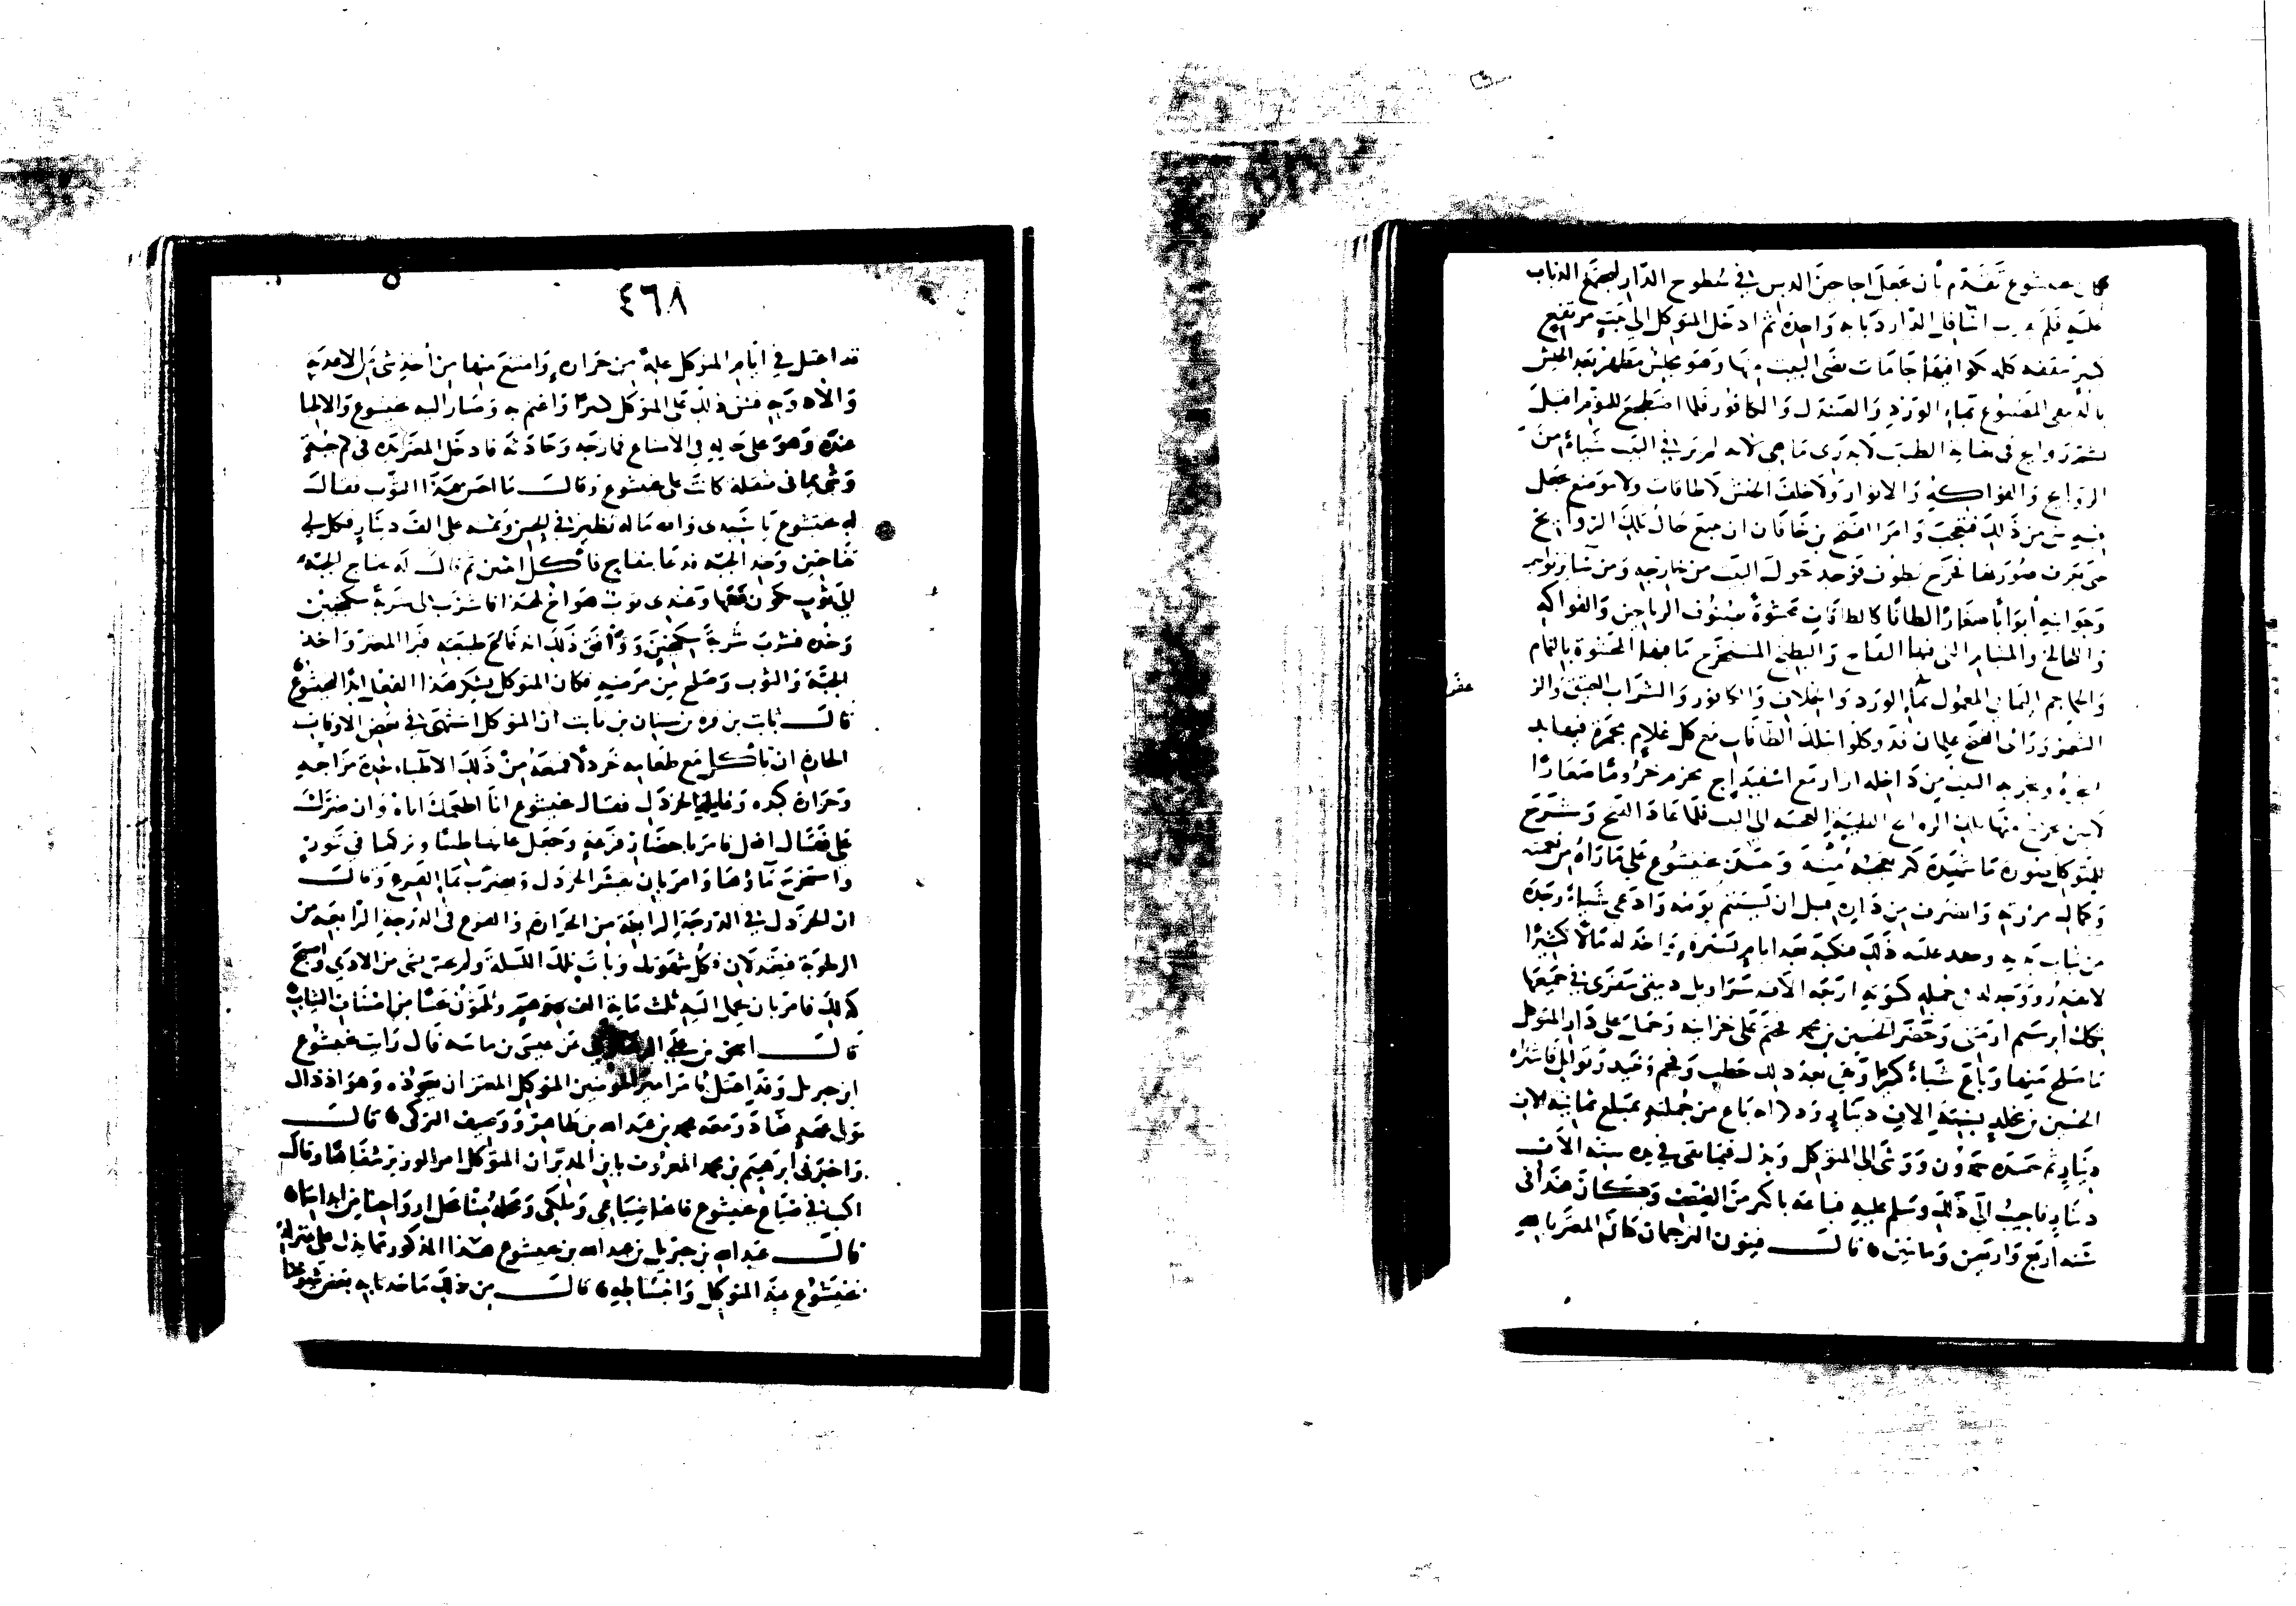 كان بختيشوع تقدم بأن تجعل اجاجين الدبس في سطوح الدار ليجتمع الذباب
عليه فلم يقرب اسافل الدار ذبابة واحدة ثم ادخل المتوكل الى بيت مربع
كبير سقفه كله كوا فيها جامات تضي البيت منها وهو مجلس مظهر بعد الخيش
بالدبيقى المصبوغ بماء الورد والصندل والكافور فلما اضطجع للنوم اقبل
يشم روايح في نهاية الطيب لا يدري ما هي لانه لم ير في البيت شيأ من
الروايح والفواكه والانوار ولا خلف الخيش لا طاقات ولا موضع يجعل
فيه شى من ذلك فتعجب وامر الفتح بن خاقان ان يتبع حال تلك الروايح
حتى يعرف صورتها فخرج يطوف فوجد حول البيت من خارجه ومن ساير نواحيه
وجوانبه أبوابا صغارا لطافا كالطاقات محشوة بصنوف الرياحين والفواكه
واللخالخ والمشام التي فيها اللفاح والبطيخ المستخرج ما فيها المحشوة بالنمام
والحماحم اليماني المعمول بماء الورد والخلاف والكافور والشراب العتيق والز
عفران
الشعر وراى الفتح غلمان قد وكلوا بتلك الطاقات مع كل غلام مجمرة فيها ند
يسجره ويبخر به البيت من داخله ازار مع اسفيداج مخرم خروما صغارا
لا تبين تخرج منها تلك الروايح الطيبة العجيبة الى البيت فلما عاد الفتح وشرح
للمتوكل صورة ما شهده كثر تعجبه منه وحسد بختيشوع على ما رآه من نعمته
وكمال مروته وانصرف من داره قبل ان يستتم يومه وادعى شيأ وجده
من التياث بدنه وحقد عليه ذلك فنكبه بعد ايام يسيرة واخذ له مالا كثيرا
لا يقدر ووجد له في جملة كسوته اربعة آلاف سراويل دبيقى سيتيزى في جميعها
تكك ابريسم ارمنى وحضر الحسين بن محمد فختم على خزانته وحمل الى دار المتوكل
ما صلح منها وباع شيأ كثيرا وبقي بعد ذلك حطب وفحم ونبيذ وتوابل فاشتراه
الحسين بن مخلد بستة الاف دينار وذكر انه باع من جملته بمبلغ ثمانية الاف
دينار ثم حسده حمدون ووشى الى المتوكل وبذل فيما بقى في يده ستة الاف
دينار فاجيب الى ذلك وسلم عليه فباعه باكثر من الضعف وكان هذا في
سنه اربع واربعين ومايتين قال فينون الترجمان كان المعتز بالله
٤٦٨
قد اعتل في ايام المتوكل علة من حرارة وامتنع منها من أخذ شى من الاغذية
والادوية فشق ذلك على المتوكل كثيرا واغتم به وصار اليه بختيشوع والاطبا
عنده وهو على حاله في الامتناع فمازحه وحادثه فادخل المعتز يده في كم جبة
وشى يمانى مثقلة كانت على بختيشوع وقال ما احسن هذا الثوب فقال
له بختيشوع يا سيدى والله ما له نظير في الحسن وثمنه على الف دينار فكل لي
تفاحتين وخذ الجبة فدعا بتفاح فأكل اثنتين ثم قال له تحتاج الجبة
الى ثوب يكون معها وعندى ثوب هو اخ لهذا فاشرب لى شربة سكنجبين
وخذه فشرب شربة سكنجبين ووافق ذلك اندفاع طبيعته فبرا المعتز واخذ
الجبة والثوب وصلح من مرضه فكان المتوكل يشكر هذا الفعل ابدا لبختيشوع
قال ثابت بن قره بن سنان بن ثابت ان المتوكل اشتهى في بعض الاوقات
الحارة ان يأكل مع طعامه خردلا فمنعه من ذلك الاطباء لحدة مزاجه
وحرارة كبده وغايلة الخردل فقال بختيشوع انا اطعمك اياه وان ضرك
علي فقال افعل فامر باحضار قرعة وجعل عليها طينا وتركها في تنور
واستخرج ماؤها وامر بان يقشر الخردل ويضرب بماء القرع وقال
ان الخردل في الدرجة الرابعة من الحرارة والقرع في الدرجة الرابعة من
الرطوبة فيعتدلان فكل شهوتك وبات تلك الليلة ولم يحس بشى من الاذى واصبح
كذلك فامر بان يحمل اليه ثلث ماية الف درهم وثلثون تختا من اصناف الثياب
قال اسحق بن علي الرهاوي عن عيسى بن ماسه قال رايت بختيشوع
ابن جبريل وقد اعتل فامر امير المؤمنين المتوكل المعتز ان يعوده وهو اذ ذاك
ولى عهد فعاده ومعه محمد بن عبد الله بن طاهر ووصيف التركى قال
واخبرنى ابرهيم بن محمد المعروف بابن المدبر ان المتوكل امر الوزير شفاها وقال
اكتب في ضياع بختيشوع فانها ضياعى وملكى ومحله منا محل ارواحنا من ابداننا
قال عبد الله بن جبريل بن عبيد الله بن بختيشوع هذا المذكور مما يدل على منزلة
بختيشوع عند المتوكل وانبساطه قال من ذلك ما حدثنا به بعض شيوخنا